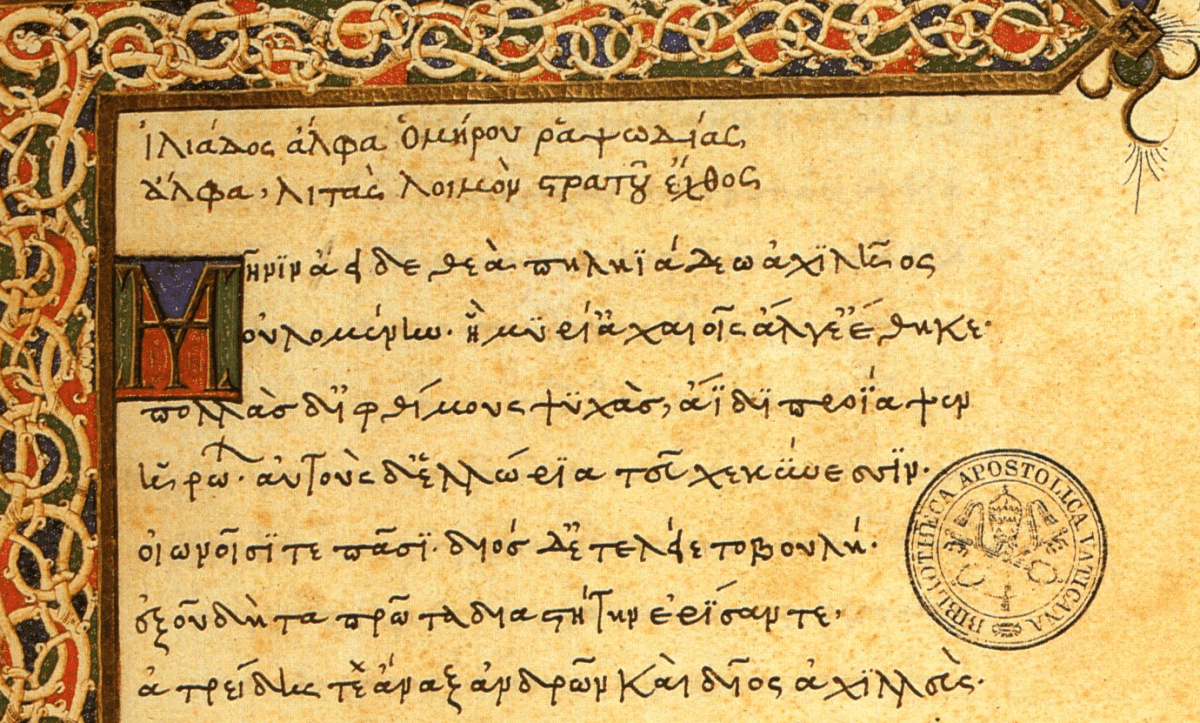 ἰλιάδος ἄλφα ὁμήρου ῥαψωδίας
ἄλφα, λιτὰς λοιμὸν στρατοῦ ἔχθος
Μῆνιν ἄειδε θεὰ πηληϊάδεω ἀχιλῆος
οὐλομένην. ἣ μυρί ἀχαιοῖς ἄλγε ἔθηκε.
πολλὰς δ' ἰφθίμους ψυχὰς, ἄϊδι προΐαψεν
ἡρώων. αὐτοὺς δ' ἑλώρια τεῦχε κύνεσσιν.
οἰωνοῖσί τε πᾶσι. διὸς δ' ἐτελείετο βουλή.
ἐξ οὗ δὴ τὰ πρῶτα διαστήτην ἐρίσαντε,
ἀτρείδης τε ἄναξ ἀνδρῶν καὶ δῖος ἀχιλλεύς.
BIBLIOTHECA APOSTOLICA VATICANA